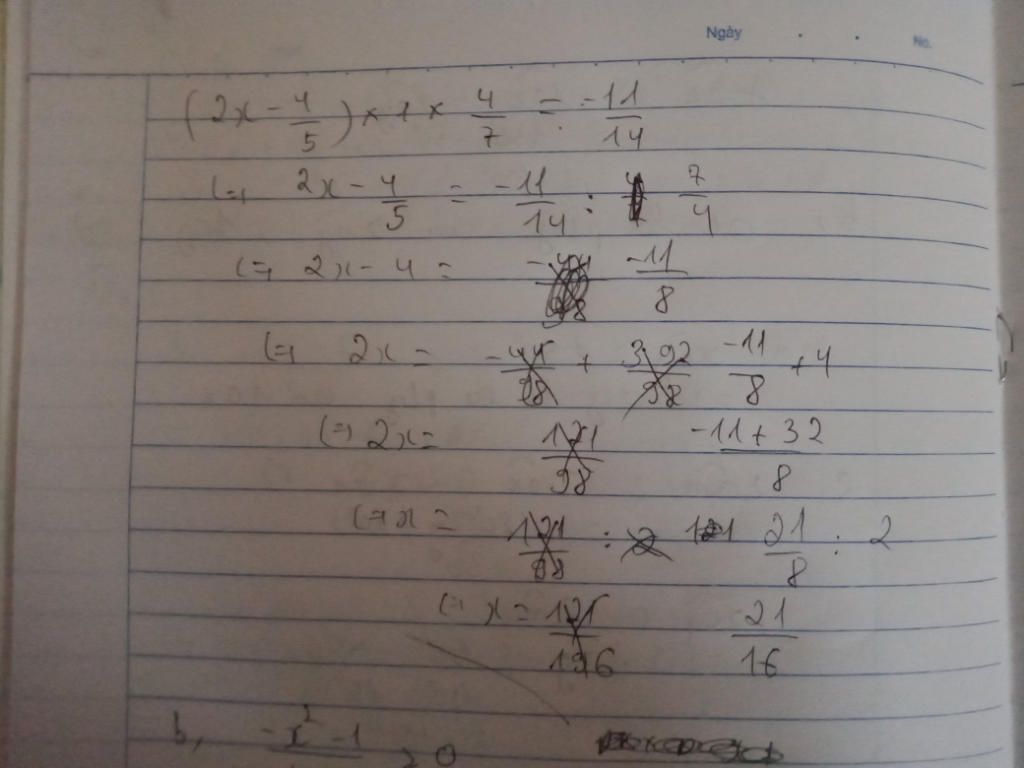 Ngày No.
(2x - 4/5) x 1 x 4/7 = -11/14
(=) 2x - 4/5 = -11/14 : 7/4
(=) 2x - 4 = -11/8
(=) 2x = -44/98 + 392/98 -11/8 + 4
(=) 2x = 121/98 -11+32/8
(=) x = 121/98 : 2 21/8 : 2
(=) x = 121/196 21/16
b, -x² -1